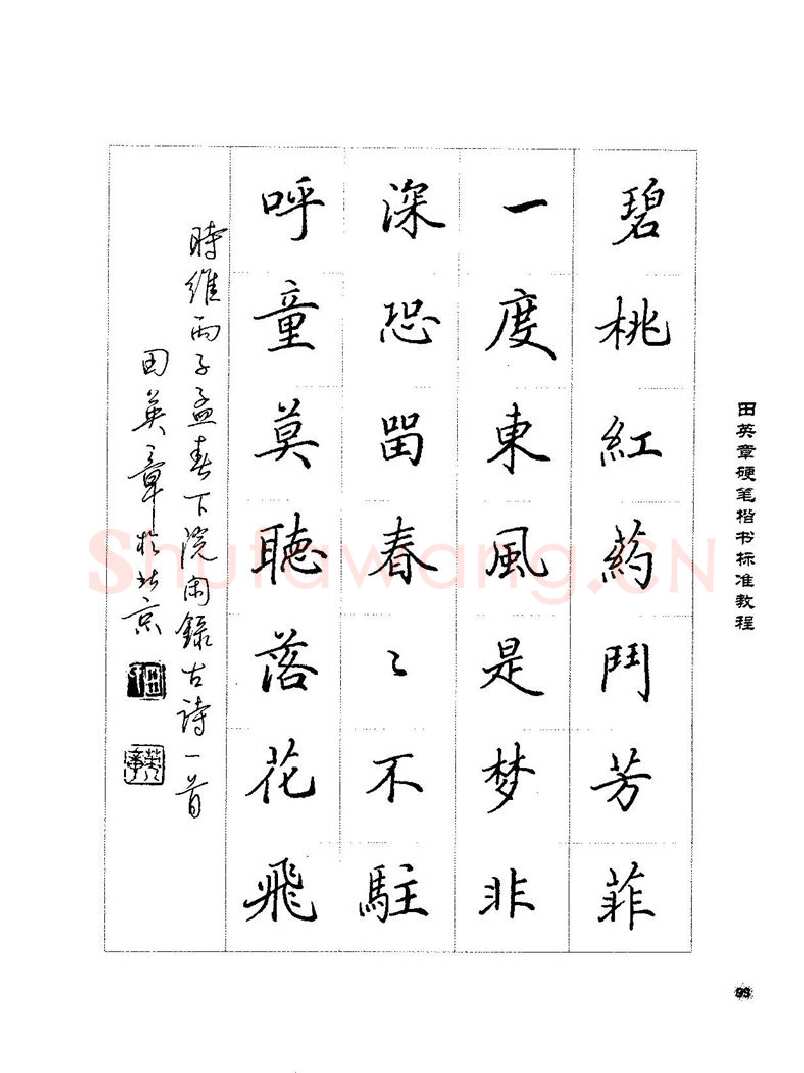 碧桃紅葯鬥芳菲
一度東風是梦非
深恐畱春〻不駐
呼童莫聽落花飛
時維丙子孟春下院闲錄古詩一首
田英章於北京
田英章硬笔楷书标准教程
Shufawang.CN